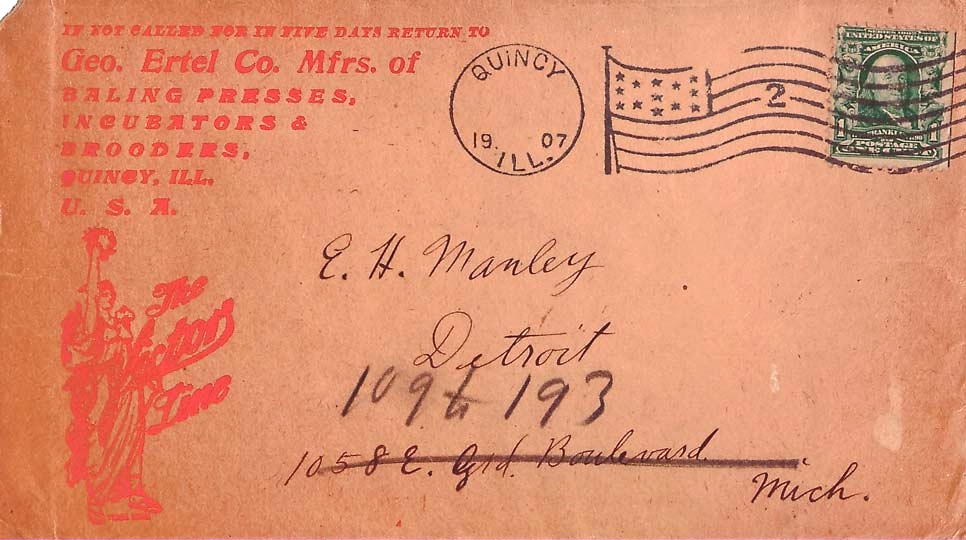 IF NOT CALLED FOR IN FIVE DAYS RETURN TO
Geo. Ertel Co. Mfrs. of
BALING PRESSES,
INCUBATORS &
BROODERS,
QUINCY, ILL.
U. S. A.
The
Victor
Line
QUINCY
19 07
ILL.
2
SERIES 1902
UNITED STATES OF
AMERICA
FRANKLIN
1 1
POSTAGE
E. H. Manley
Detroit
109 193
1058 E. Grd. Boulevard
Mich.